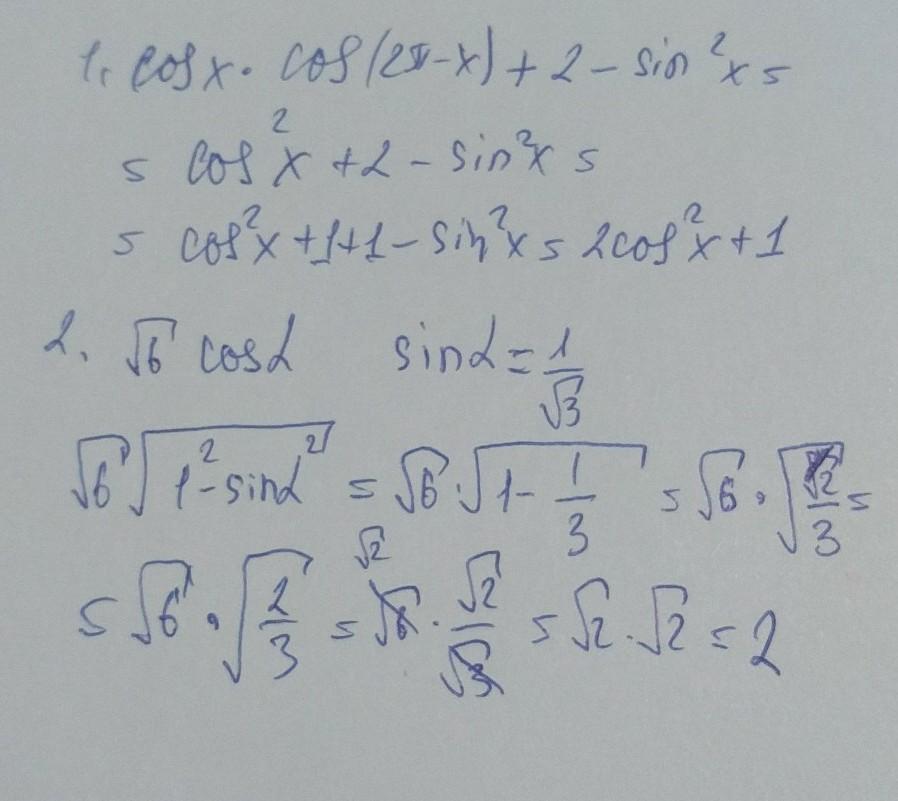 1. cos x · cos(2π-x) + 2 - sin²x =
= cos²x + 2 - sin²x =
= cos²x + 1 + 1 - sin²x = 2cos²x + 1
2. √6 cosα sinα = 1/√3
√6 √(1² - sinα²) = √6 · √(1 - 1/3) = √6 · √(2/3) =
= √6 · √(2/3) = √6 √2 · √2/√3 = √2 · √2 = 2